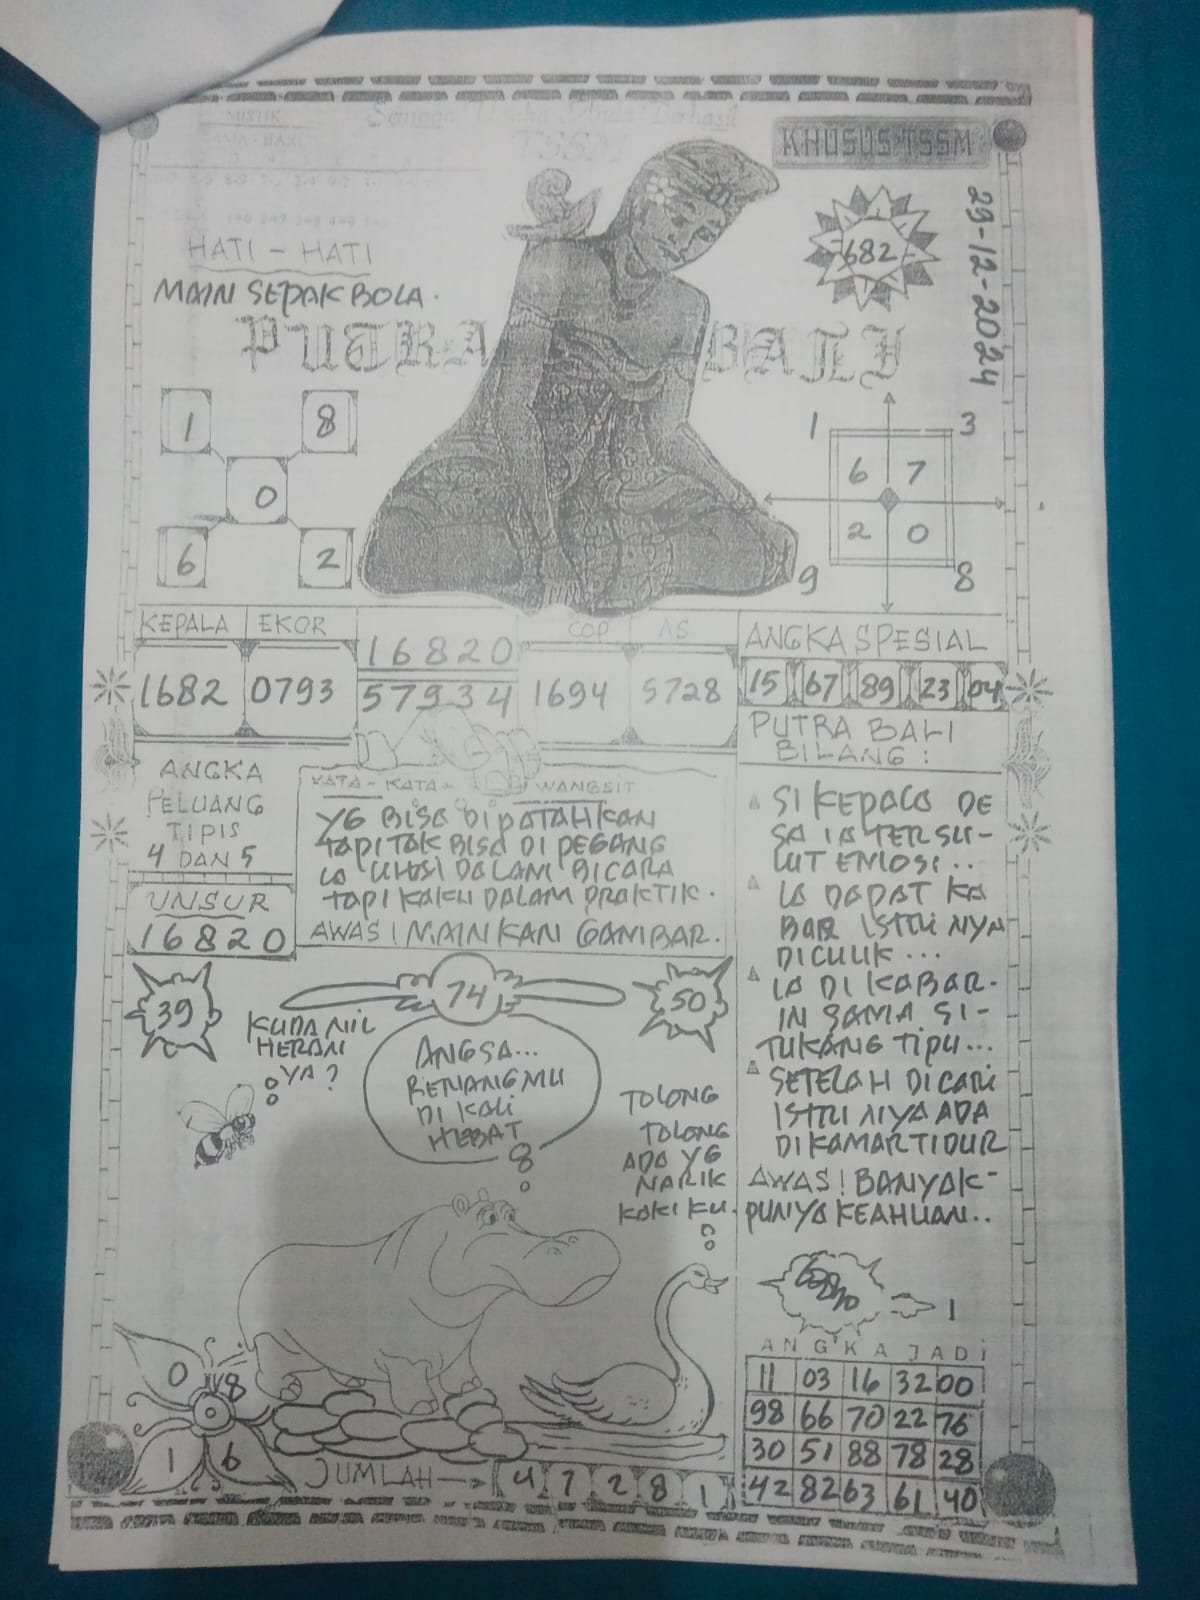 MISTIK
Semoga Usaha Anda Berhasil
TSSM
KHUSUS TSSM
29-12-2024
682
HATI - HATI
MAIN SEPAK BOLA.
PUTRA BALI
1 8
0
6 2
1 3
6 7
2 0
9 8
KEPALA EKOR
1682 0793
16820
57934
COP AS
1694 5728
ANGKA SPESIAL
15 67 89 23 04
ANGKA
PELUANG
TIPIS
4 DAN 5
UNSUR
16820
KATA - KATA - WANGSIT
YG BISA DIPATAHKAN
TAPI TAK BISA DI PEGANG
TAPI KAKU DALAM PRAKTIK.
AWAS! MAINKAN GAMBAR.
PUTRA BALI
BILANG :
SI KEPALA DE
SA IA TERSU-
LUT EMOSI..
IA DAPAT KA
BAR ISTRI NYA
DICULIK...
IA DI KABAR-
IN SAMA SI-
TUKANG TIPU...
SETELAH DICARI
ISTRI NYA ADA
DI KAMAR TIDUR
AWAS! BANYAK-
PUNYA KEAHLIAN..
39
74
50
KUDA NIL
HERAN
YA?
ANGSA...
RENANGMU
DI KALI
HEBAT
TOLONG
TOLONG
ADA YG
NARIK
KAKI KU.
0 8
1 6
JUMLAH 4 7 2 8 1
1
ANGKA JADI
11 03 16 32 00
98 66 70 22 76
30 51 88 78 28
42 82 63 61 40